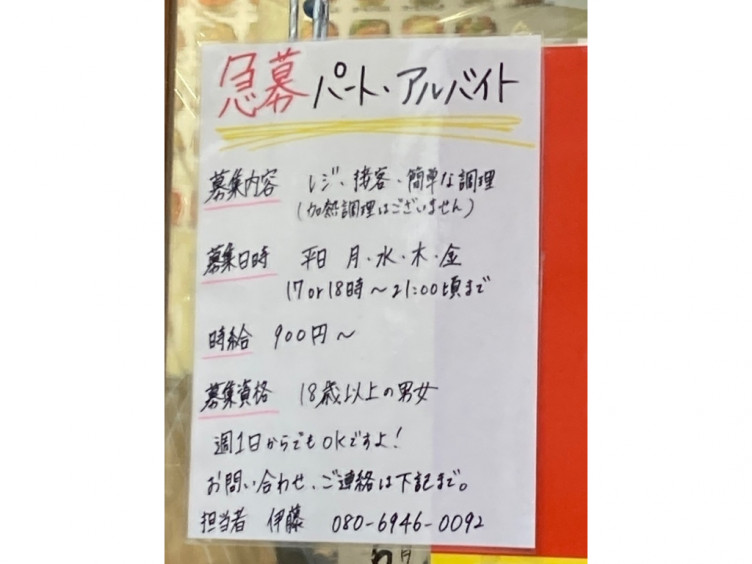 急募 パート・アルバイト
募集内容 レジ、接客・簡単な調理
(加熱調理はございません)
募集日時 平日 月・水・木・金
17or18時～21:00頃まで
時給 900円～
募集資格 18歳以上の男女
週1日からでもOKですよ!
お問い合わせ、ご連絡は下記まで。
担当者 伊藤 080-6946-0092
月